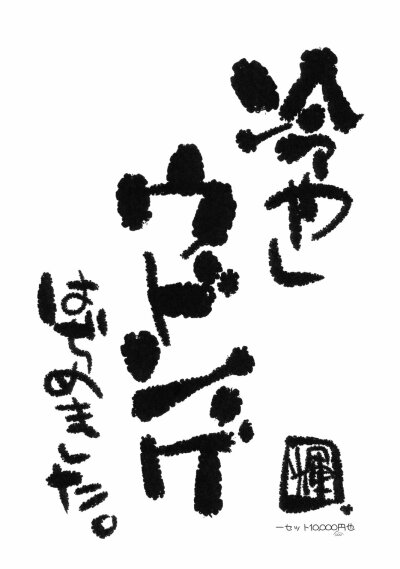 冷やし
ウドンゲ
はじめました。
輝
一セット10,000円也